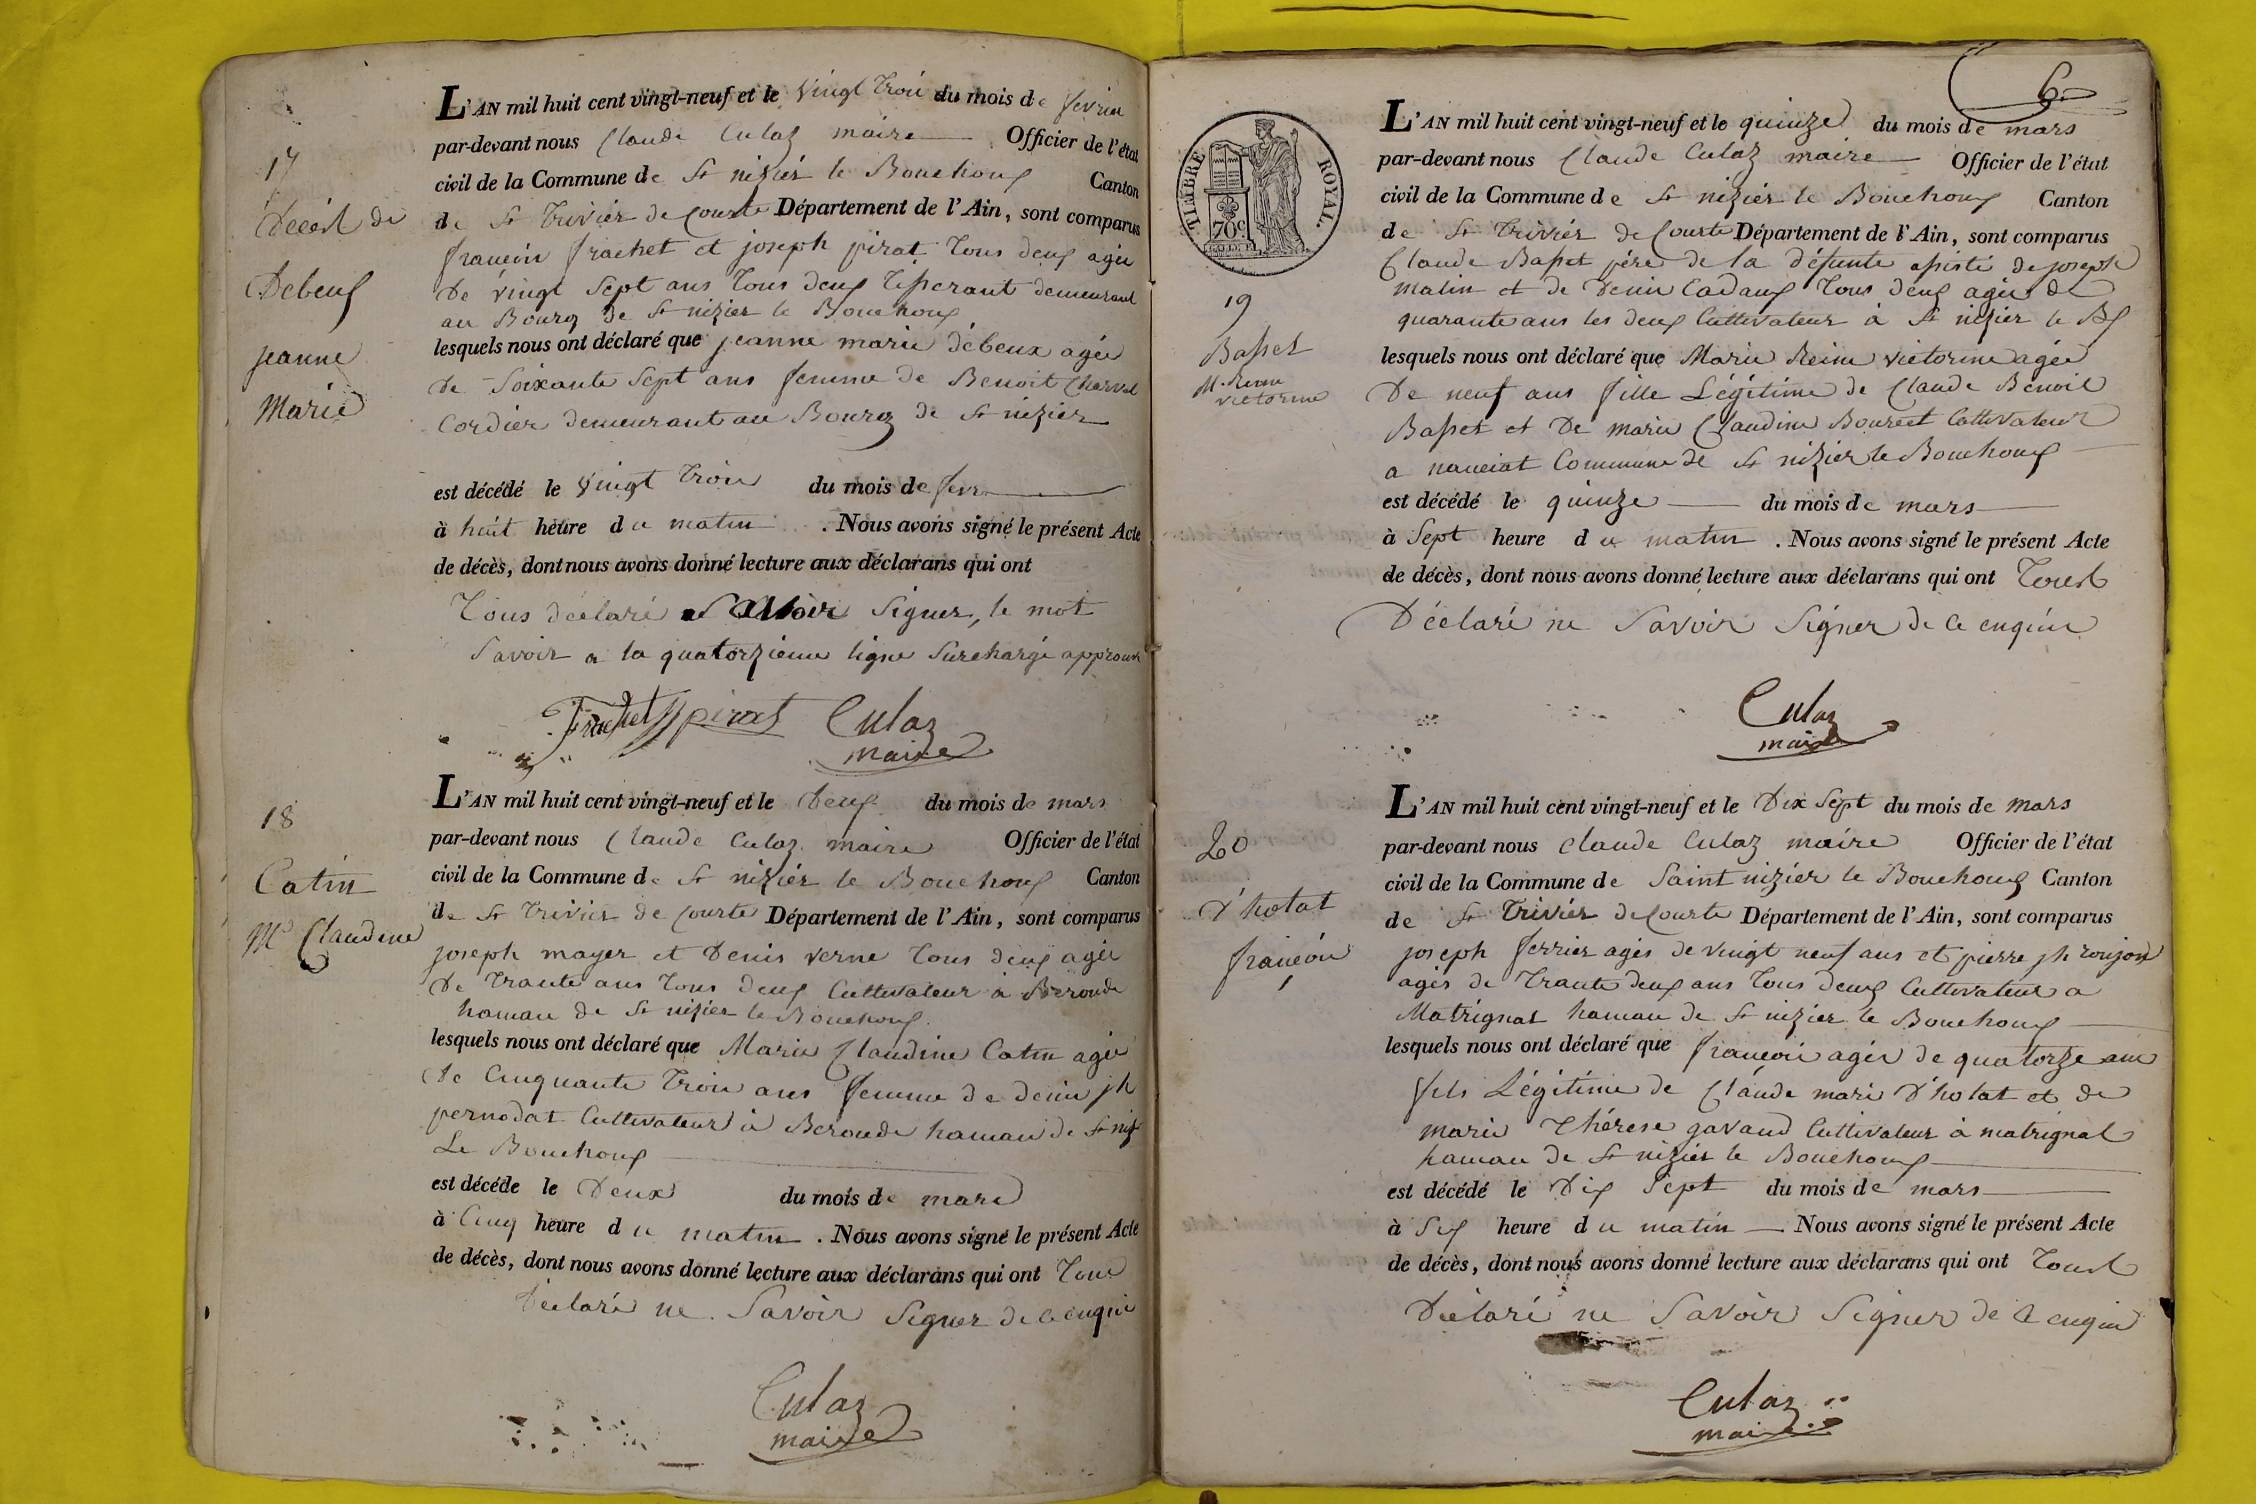 17
Décést de
Debeuf
jeanne
Marie
L'AN mil huit cent vingt-neuf et le vingt troii du mois de fevrier
par-devant nous Claude Culaz maire Officier de l'état
civil de la Commune de St nizier le Bouchoux Canton
de St Trivier de Courte Département de l'Ain, sont comparus
francoii frachet et joseph pirat Tous deux agéz
De vingt Sept ans Tous deux Tisserant demeurant
au Bourg de St nizier le Bouchoux
lesquels nous ont déclaré que jeanne marie débeux agée
De Soixante Sept ans femme de Benoit Charval
Cordier demeurant au Bourg de St nizier
est décédé le vingt Troii du mois de fevr
à huit heure du matin . Nous avons signé le présent Acte
de décès, dont nous avons donné lecture aux déclarans qui ont
Tous déclaré Savoir Signer, le mot
Savoir a la quatorzieme ligne Surchargé approuvé
Frachet J pirat Culaz
maire
18
Catin
Me Claudine
L'AN mil huit cent vingt-neuf et le Deux du mois de mars
par-devant nous Claude Culaz maire Officier de l'état
civil de la Commune de St nizier le Bouchoux Canton
de St Trivier de Courte Département de l'Ain, sont comparus
joseph mayer et Denis verne Tous deux agéz
De Trante ans Tous deux Cultivateur à Beroude
hamau de St nizier le Bouchoux
lesquels nous ont déclaré que Marie Claudine Catin agée
De Cinquante Troii ans femme de denis jh
pernodat Cultivateur à Beroude hamau de St niz
Le Bouchoux
est décéde le Deux du mois de mars
à Cinq heure du matin . Nous avons signé le présent Acte
de décès, dont nous avons donné lecture aux déclarans qui ont Tous
Déclaré ne Savoir Signer de ce enquii
Culaz
maire
6
TIMBRE ROYAL.
70c
19
Basset
M. Reine
victorine
L'AN mil huit cent vingt-neuf et le quinze du mois de mars
par-devant nous Claude Culaz maire Officier de l'état
civil de la Commune de St nizier le Bouchoux Canton
de St Trivier de Courte Département de l'Ain, sont comparus
Claude Basset pére de la défunte assisté de joseph
matin et de Denis Cadaux Tous deux agéz de
quarante ans les deux Cultivateur à St nizier le Bx
lesquels nous ont déclaré que Marie Reine victorine agée
De neuf ans fille Légitime de Claude Benoit
Basset et De marie Claudine Bourcet Cultivateur
a nanciat Commune de St nizier le Bouchoux
est décédé le quinze du mois de mars
à Sept heure du matin . Nous avons signé le présent Acte
de décès, dont nous avons donné lecture aux déclarans qui ont Tous
Déclaré ne Savoir Signer de ce enquii
Culaz
maire
20
D'hotat
françoii
L'AN mil huit cent vingt-neuf et le Dix Sept du mois de mars
par-devant nous Claude Culaz maire Officier de l'état
civil de la Commune de Saint nizier le Bouchoux Canton
de St Trivier de Courte Département de l'Ain, sont comparus
joseph ferrier agés de vingt neuf ans et pierre jh roujon
agés de Trante deux ans Tous deux Cultivateur a
Matrignat hamau de St nizier le Bouchoux
lesquels nous ont déclaré que françoii agés de quatorze ans
fils Légitime de Claude marie D'hotat et de
marie Thérese gavand Cultivateur à matrignat
hamau de St nizier le Bouchoux
est décédé le Dix Sept du mois de mars
à Six heure du matin Nous avons signé le présent Acte
de décès, dont nous avons donné lecture aux déclarans qui ont Tous
Déclaré ne Savoir Signer de ce enquii
Culaz
maire